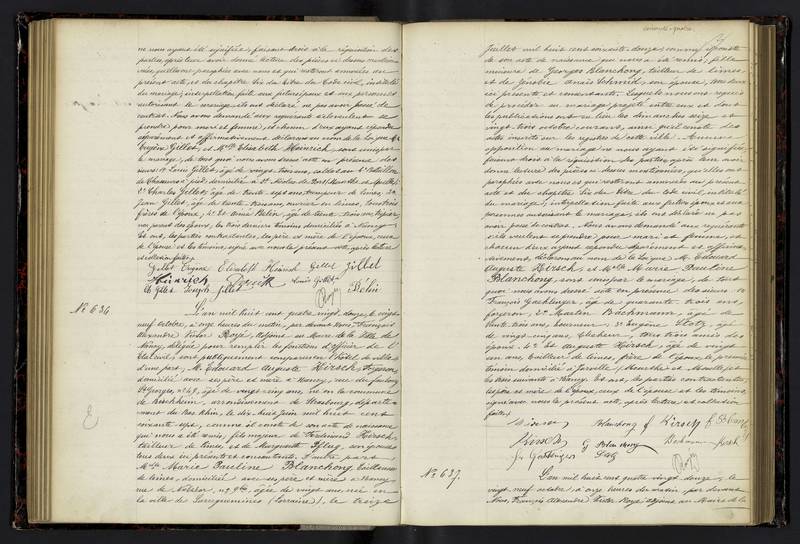 ne nous ayant été signifiée, faisant droit à la réquisition des
parties, après leur avoir donné lecture des pièces ci-dessus mention-
nées, qu'elles ont paraphées avec nous et qui resteront annexées au
présent acte, et du chapitre six du titre du Code civil, intitulé
du mariage, interpellation faite aux futurs époux et aux personnes
autorisant le mariage, ils ont déclaré ne pas avoir passé de
contrat. Nous avons demandé aux requérants s'ils veulent se
prendre pour mari et femme; et chacun d'eux ayant répondu
séparément et affirmativement, déclarons au nom de la loi que M.
Eugène Gillet, et Mlle Elisabeth Heinrich, sont unis par
le mariage, de tout quoi nous avons dressé acte en présence des
sieurs 1o Louis Gillet, âgé de vingt trois ans, soldat au Bataillon
de Chasseurs à pied, domicilié à St Nicolas de Port (Meurthe et Moselle),
2o Charles Gillet, âgé de trente sept ans, tailleur de limes, 3o
Jean Gillet, âgé de trente ans, ouvrier en limes, tous trois
frères de l'époux, 4o et Bélin, âgé de trente trois ans,
non parent des époux, les trois derniers témoins domiciliés à Nancy
Et ont, les parties contractantes, les père et mère de l'époux,
de l'épouse et les témoins, signé avec nous le présent acte, après lecture
et collation faites.
Gillet Eugène Elisabeth Heinrich Gillet Gillet
Heinrich Louis Gillet
Ch Gillet Joseph Gillet Rozé Bélin
No 636
L'an mil huit cent quatre vingt douze, le vingt
neuf octobre, à onze heures du matin, par devant Nous, François
Alexandre Victor Rozé, adjoint au Maire de la Ville de
Nancy, délégué pour remplir les fonctions d'officier de l'
Etat civil, sont publiquement comparus en l'hôtel de ville:
d'une part, M. Edouard Auguste Hirsch, forgeron,
domicilié avec ses père et mère à Nancy, rue du faubourg
St Georges, no 49, âgé de vingt cinq ans, né en la commune
de arrondissement de Strasbourg, départe-
ment du Bas Rhin, le dix huit Juin mil huit cent
soixante sept, comme il conste de son acte de naissance
qui nous a été remis, fils majeur de Ferdinand Hirsch,
tailleur de limes, et de Marguerite son épouse,
tous deux ici présents et consentants. D'autre part,
Mlle Marie Pauline Blanchong,
de limes, domiciliée avec ses père et mère à Nancy,
rue de no âgée de vingt ans, née en
la ville de Sarreguemines (Lorraine), le treize
Juillet mil huit cent soixante-douze, comme il conste
de son acte de naissance qui nous a été remis, fille
mineure de Georges Blanchong, tailleur de limes,
et de Anaïs Schmid, son épouse, tous deux
ici présents et consentants. Lesquels nous ont requis
de procéder au mariage projeté entre eux et dont
les publications ont eu lieu les dimanches seize et
vingt trois octobre courant, ainsi qu'il conste des
actes inscrits sur les registres de cette ville. Aucune
opposition au mariage ne nous ayant été signifiée,
faisant droit à la réquisition des parties, après leur avoir
donné lecture des pièces ci-dessus mentionnées, qu'elles ont
paraphées avec nous et qui resteront annexées au présent
acte et du chapitre six du titre du Code civil, intitulé
du mariage, interpellation faite aux futurs époux et aux
personnes autorisant le mariage, ils ont déclaré ne pas
avoir passé de contrat. Nous avons demandé aux requérants
s'ils veulent se prendre pour mari et femme; et
chacun d'eux ayant répondu séparément et affirma-
tivement, déclarons au nom de la loi que M. Edouard
Auguste Hirsch, et Mlle Marie Pauline
Blanchong, sont unis par le mariage, de tout
quoi nous avons dressé acte en présence des sieurs 1o
François âgé de quarante trois ans,
forgeron, 2o Martin Bachmann, âgé de
trente trois ans, tourneur, 3o Eugène âgé
de vingt cinq ans, tous trois amis des
époux, 4o et Auguste Hirsch, âgé de vingt
un ans, tailleur de limes, frère de l'époux, le premier
témoin domicilié à Jarville (Meurthe et Moselle), et
les trois suivants à Nancy. Et ont, les parties contractantes,
les père et mère de l'époux, ceux de l'épouse et les témoins,
signé avec nous le présent acte, après lecture et collation
faites.
Blanchong
Hirsch G Blanchong
Rozé
No 637.
L'an mil huit cent quatre vingt douze, le
vingt neuf octobre, à onze heures du matin, par devant
Nous, François Alexandre Victor Rozé, adjoint au Maire de la